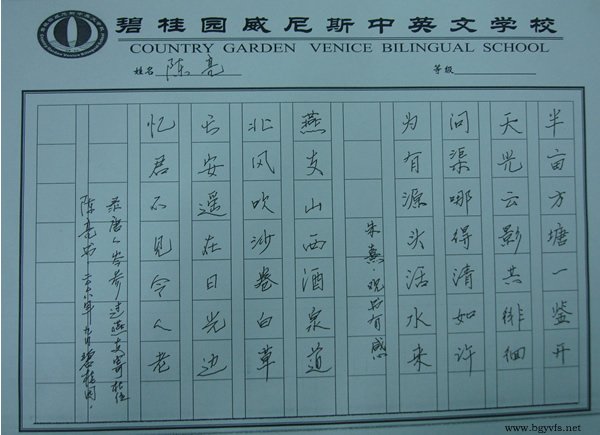 碧桂园威尼斯中英文学校
COUNTRY GARDEN VENICE BILINGUAL SCHOOL
姓名 陈亮 等级
半亩方塘一鉴开
天光云影共徘徊
问渠哪得清如许
为有源头活水来
朱熹·观书有感
燕支山西酒泉道
北风吹沙卷白草
长安遥在日光边
忆君不见令人老
录唐人岑参过燕支寄杜位
陈亮书 年九月碧桂园.
www.bgyvfs.net